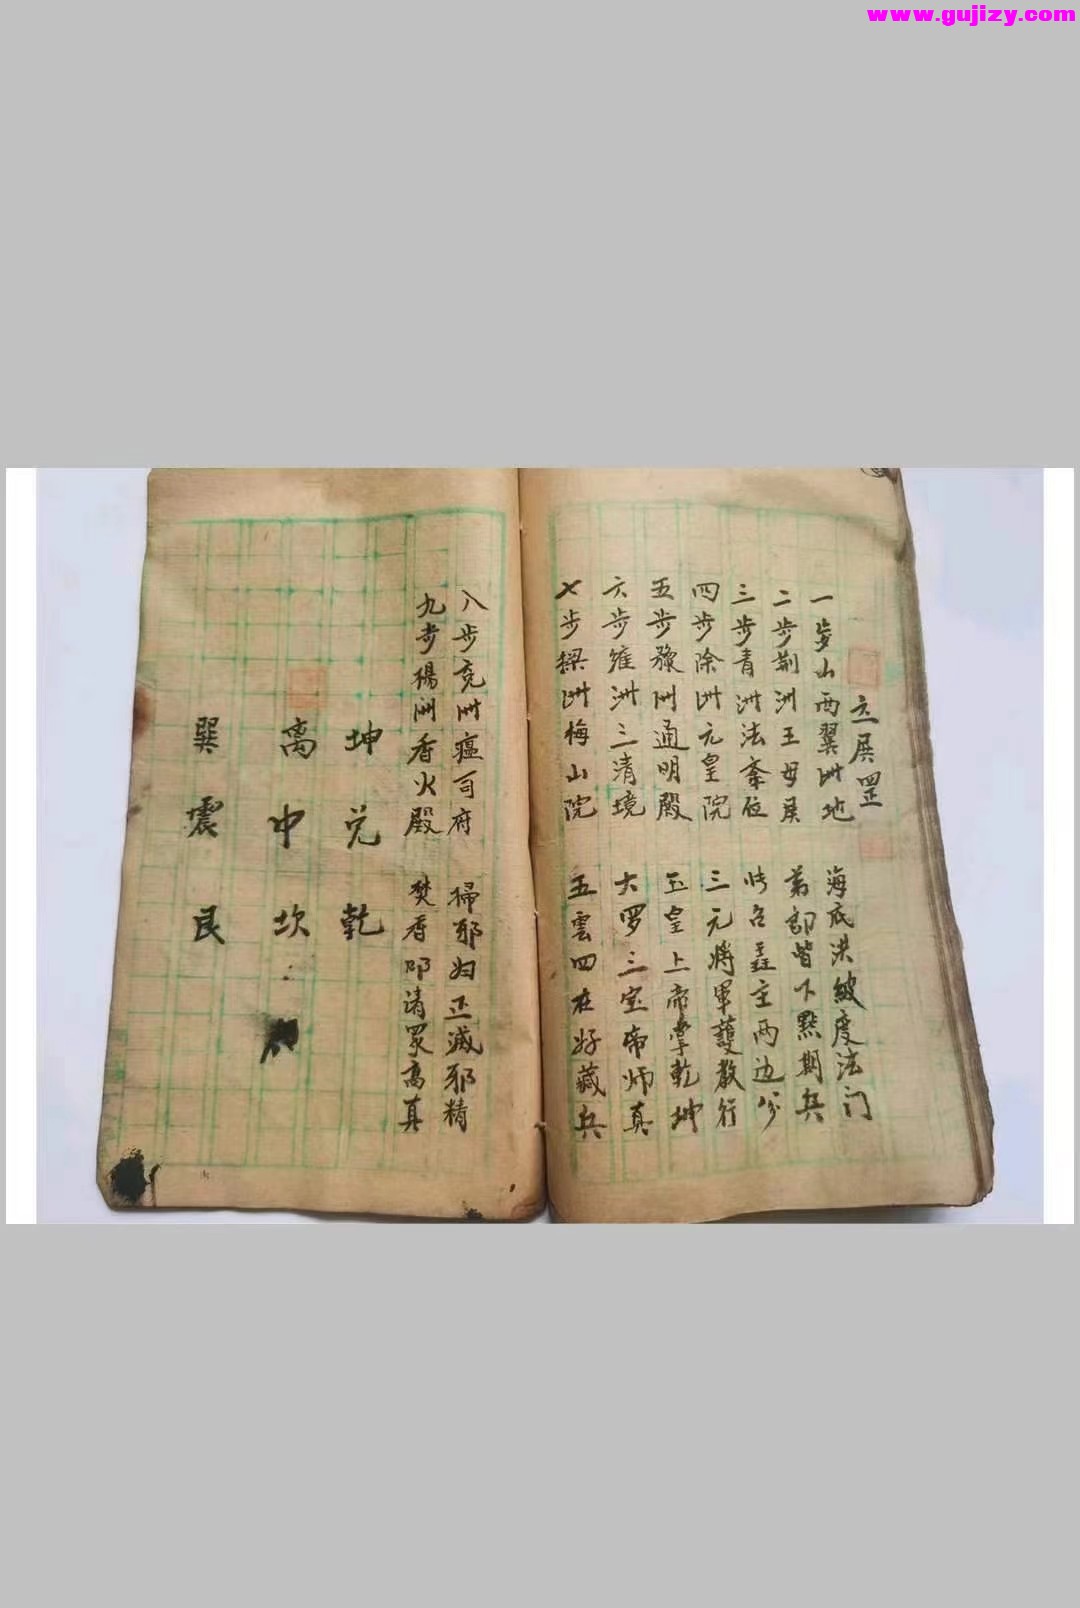 www.gujizy.com
立展罡
一步山西翼洲地 海底洪波度法门
二步荆洲王母展 皆下點期兵
三步青洲法奏位 主两边分
四步除洲元皇院 三元將軍護教行
五步豫洲通明殿 玉皇上帝掌乾坤
六步雍洲三清境 大罗三宝帝师真
七步梁洲梅山院 五雲四在好藏兵
八步兖洲瘟司府 掃邪归正滅邪精
九步楊洲香火殿 焚香叩请眾高真
坤 兑 乾
离 中 坎
巽 震 艮